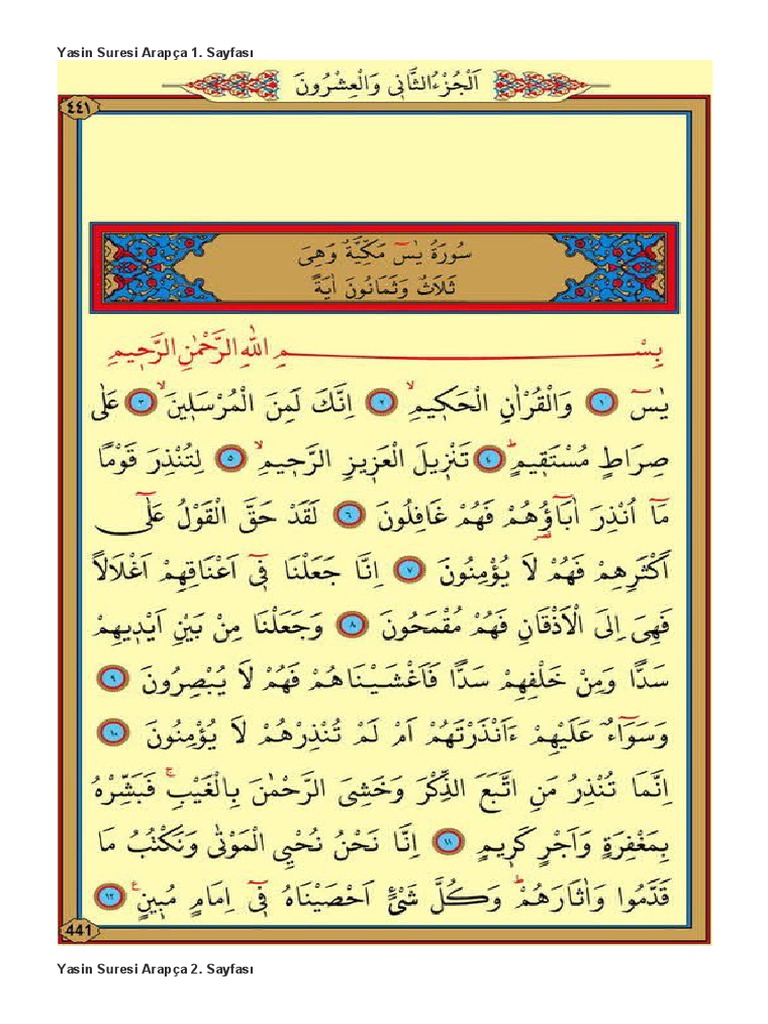 Yasin Suresi Arapça 1. Sayfası
اَلْجُزْءُ الثَّانٖى وَالْعِشْرُونَ
٤٤١
سُورَةُ يٰسٓ مَكِّيَّةٌ وَهِىَ
ثَلَاثٌ وَثَمَانُونَ اٰيَةً
بِسْمِ اللّٰهِ الرَّحْمٰنِ الرَّحٖيمِ
يٰسٓ ﴿١﴾ وَالْقُرْاٰنِ الْحَكٖيمِۙ ﴿٢﴾ اِنَّكَ لَمِنَ الْمُرْسَلٖينَۙ ﴿٣﴾ عَلٰى
صِرَاطٍ مُسْتَقٖيمٍۜ ﴿٤﴾ تَنْزٖيلَ الْعَزٖيزِ الرَّحٖيمِۙ ﴿٥﴾ لِتُنْذِرَ قَوْمًا
مَٓا اُنْذِرَ اٰبَٓاؤُ۬هُمْ فَهُمْ غَافِلُونَ ﴿٦﴾ لَقَدْ حَقَّ الْقَوْلُ عَلٰٓى
قصر
اَكْثَرِهِمْ فَهُمْ لَا يُؤْمِنُونَ ﴿٧﴾ اِنَّا جَعَلْنَا فٖٓى اَعْنَاقِهِمْ اَغْلَالًا
فَهِىَ اِلَى الْاَذْقَانِ فَهُمْ مُقْمَحُونَ ﴿٨﴾ وَجَعَلْنَا مِنْ بَيْنِ اَيْدٖيهِمْ
سَدًّا وَمِنْ خَلْفِهِمْ سَدًّا فَاَغْشَيْنَاهُمْ فَهُمْ لَا يُبْصِرُونَ ﴿٩﴾
وَسَوَٓاءٌ عَلَيْهِمْ ءَاَنْذَرْتَهُمْ اَمْ لَمْ تُنْذِرْهُمْ لَا يُؤْمِنُونَ ﴿١٠﴾
اِنَّمَا تُنْذِرُ مَنِ اتَّبَعَ الذِّكْرَ وَخَشِىَ الرَّحْمٰنَ بِالْغَيْبِۚ فَبَشِّرْهُ
بِمَغْفِرَةٍ وَاَجْرٍ كَرٖيمٍ ﴿١١﴾ اِنَّا نَحْنُ نُحْيِ الْمَوْتٰى وَنَكْتُبُ مَا
قَدَّمُوا وَاٰثَارَهُمْۜ وَكُلَّ شَىْءٍ اَحْصَيْنَاهُ فٖٓى اِمَامٍ مُبٖينٍ ع ﴿١٢﴾
441
Yasin Suresi Arapça 2. Sayfası